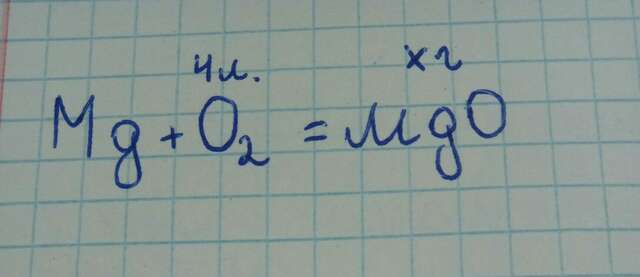 4л. х г
Mg + O₂ = MgO